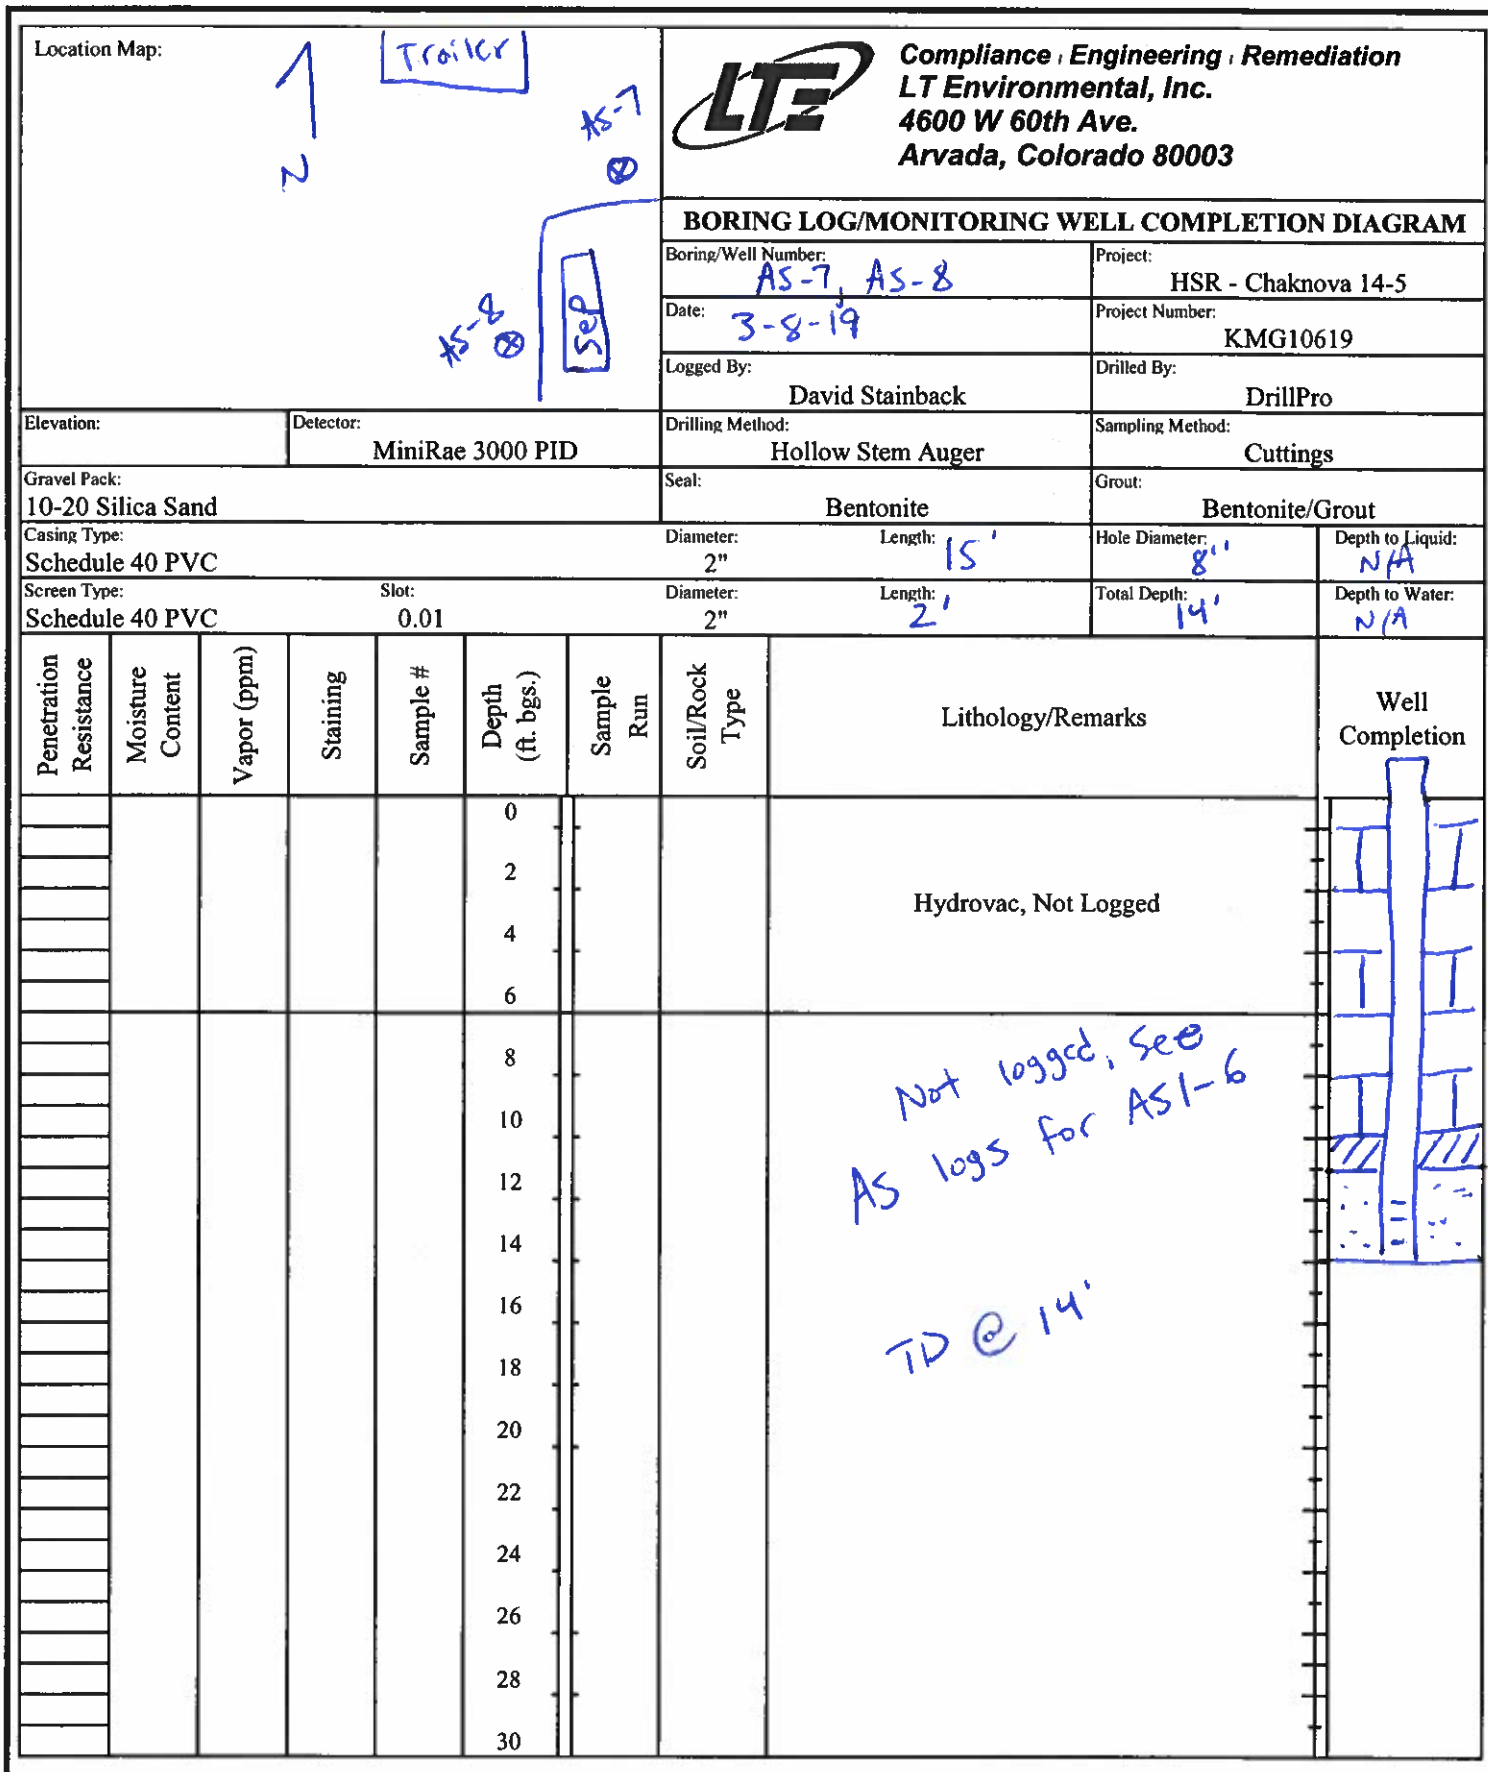 Location Map:
Trailer
N
AS-7
AS-8
Sep
LTE
Compliance | Engineering | Remediation
LT Environmental, Inc.
4600 W 60th Ave.
Arvada, Colorado 80003
BORING LOG/MONITORING WELL COMPLETION DIAGRAM
Boring/Well Number: AS-7, AS-8
Project: HSR - Chaknova 14-5
Date: 3-8-19
Project Number: KMG10619
Logged By: David Stainback
Drilled By: DrillPro
Elevation:
Detector: MiniRae 3000 PID
Drilling Method: Hollow Stem Auger
Sampling Method: Cuttings
Gravel Pack: 10-20 Silica Sand
Seal: Bentonite
Grout: Bentonite/Grout
Casing Type: Schedule 40 PVC
Diameter: 2"
Length: 15'
Hole Diameter: 8"
Depth to Liquid: N/A
Screen Type: Schedule 40 PVC
Slot: 0.01
Diameter: 2"
Length: 2'
Total Depth: 14'
Depth to Water: N/A
Penetration Resistance
Moisture Content
Vapor (ppm)
Staining
Sample #
Depth (ft. bgs.)
Sample Run
Soil/Rock Type
Lithology/Remarks
Well Completion
0
2
Hydrovac, Not Logged
4
6
8
Not logged, see
10
AS logs for AS1-6
12
14
16
TD @ 14'
18
20
22
24
26
28
30